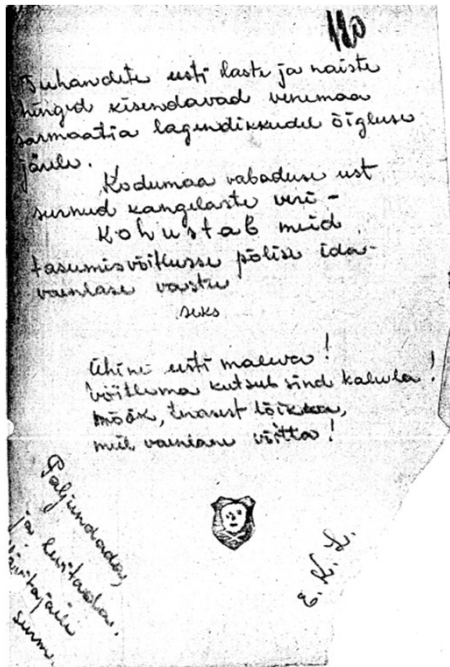 180
Tuhandete eesti laste ja naiste
hinged kisendavad venemaa
sarmaatia lagendikkudel õigluse
järele.
Kodumaa vabaduse est
surnud kangelaste veri -
kohustab meid
tasumisvõitlusse põlise ida-
vaenlase vastu
seks
Ühine eesti maleva!
Võitlema kutsub sind kalevla!
mõõk, terasest lõikka,
meil vaenlane võitta!
Paljundada,
ja levitada.
Hävitajaile
surm.
E. L. L.